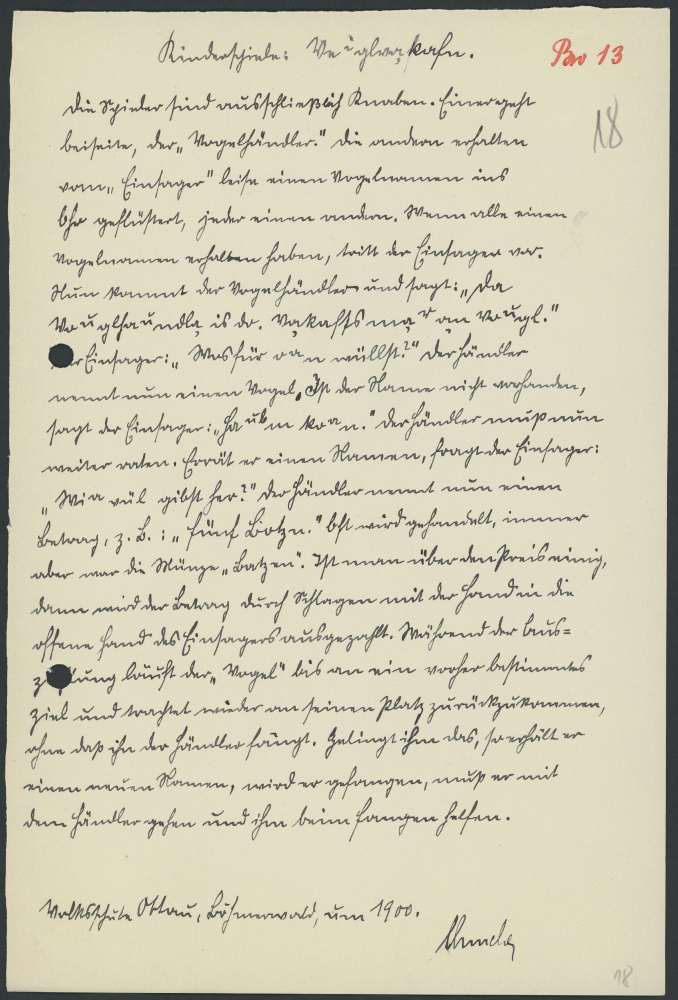 Kinderspiele: Veiglvakafn.
Pro 13
18
Die Spieler sind ausschließlich Knaben. Einer geht
beiseite, der „Vogelhändler." Die andern erhalten
vom „Einsager" leise einen Vogelnamen ins
Ohr geflüstert, jeder einen andern. Wenn alle einen
Vogelnamen erhalten haben, tritt der Einsager vor.
Nun kommt der Vogelhändler und sagt: „Da
Vouglhaundla is do. Vakaffs mar an Vougl."
Der Einsager: „Wos für oan wüllst?" Der Händler
nennt nun einen Vogel. Ist der Name nicht vorhanden,
sagt der Einsager: „Haubm koan." Der Händler muß nun
weiter raten. Errät er einen Namen, fragt der Einsager:
„Wia vül gibst her?" Der Händler nennt nun einen
Betrag, z. B.: „Fünf Botzn." Oft wird gehandelt, immer
aber war die Münze „Batzen". Ist man über den Preis einig,
dann wird der Betrag durch Schlagen mit der Hand in die
offene Hand des Einsagers ausgezahlt. Während der Aus=
zahlung läuft der „Vogel" bis an ein vorher bestimmtes
Ziel und trachtet wieder an seinen Platz zurückzukommen,
ohne daß ihn der Händler fängt. Gelingt ihm das, so erhält er
einen neuen Namen, wird er gefangen, muß er mit
dem Händler gehen und ihm beim Fangen helfen.
Volksschule Ottau, Böhmerwald, um 1900.
18